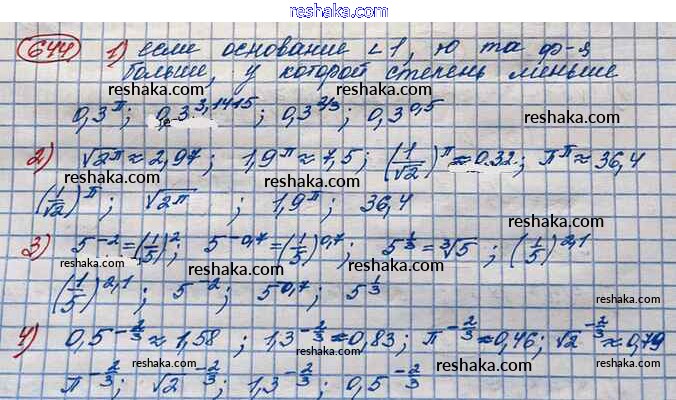 www.reshaka.com
644 1) если основание < 1, то та ф-я
больше, у которой степень меньше
reshaka.com reshaka.com
0,3^π; 0,3^3,1415; 0,3^2/3; 0,3^0,5
reshaka.com
2) √2^π ≈ 2,97; 1,9^π ≈ 7,5; (1/√2)^π ≈ 0.32; π^π ≈ 36,4
reshaka.com reshaka.com
(1/√2)^π; √2^π; 1,9^π; 36,4
reshaka.com
3) 5^-2 = (1/5)^2; 5^-0,7 = (1/5)^0,7; 5^1/3 = ³√5; (1/5)^2,1
reshaka.com reshaka.com
(1/5)^2,1; 5^-2; 5^0,7; 5^1/3
reshaka.com
4) 0,5^-2/3 ≈ 1,58; 1,3^-2/3 ≈ 0,83; π^-2/3 ≈ 0,46; √2^-2/3 ≈ 0,79
reshaka.com reshaka.com
π^-2/3; √2^-2/3; 1,3^-2/3; 0,5^-2/3
reshaka.com